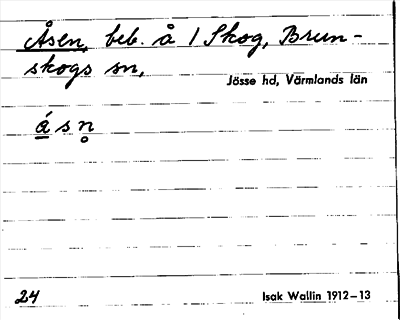 Åsen, beb. å 1 Skog, Brun-
skogs sn,
Jösse hd, Värmlands län
á̱ s n̥
24
Isak Wallin 1912–13